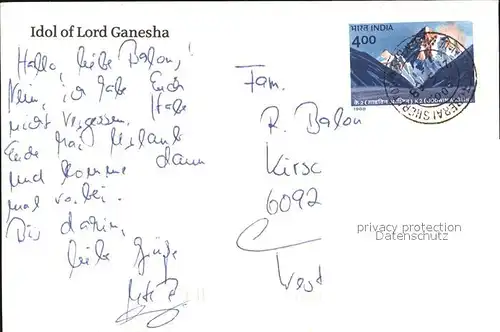 Idol of Lord Ganesha
Hallo, liebe Balon,!
Nein, ich habe Euch
nicht vergessen. Habe
Ende Mai Urlaub
und komme dann
mal vorbei.
Bis dahin,
liebe Grüße
भारत INDIA
4.00
1988
Fam.
R. Balon
Kirsc
6092
West
privacy protection
Datenschutz